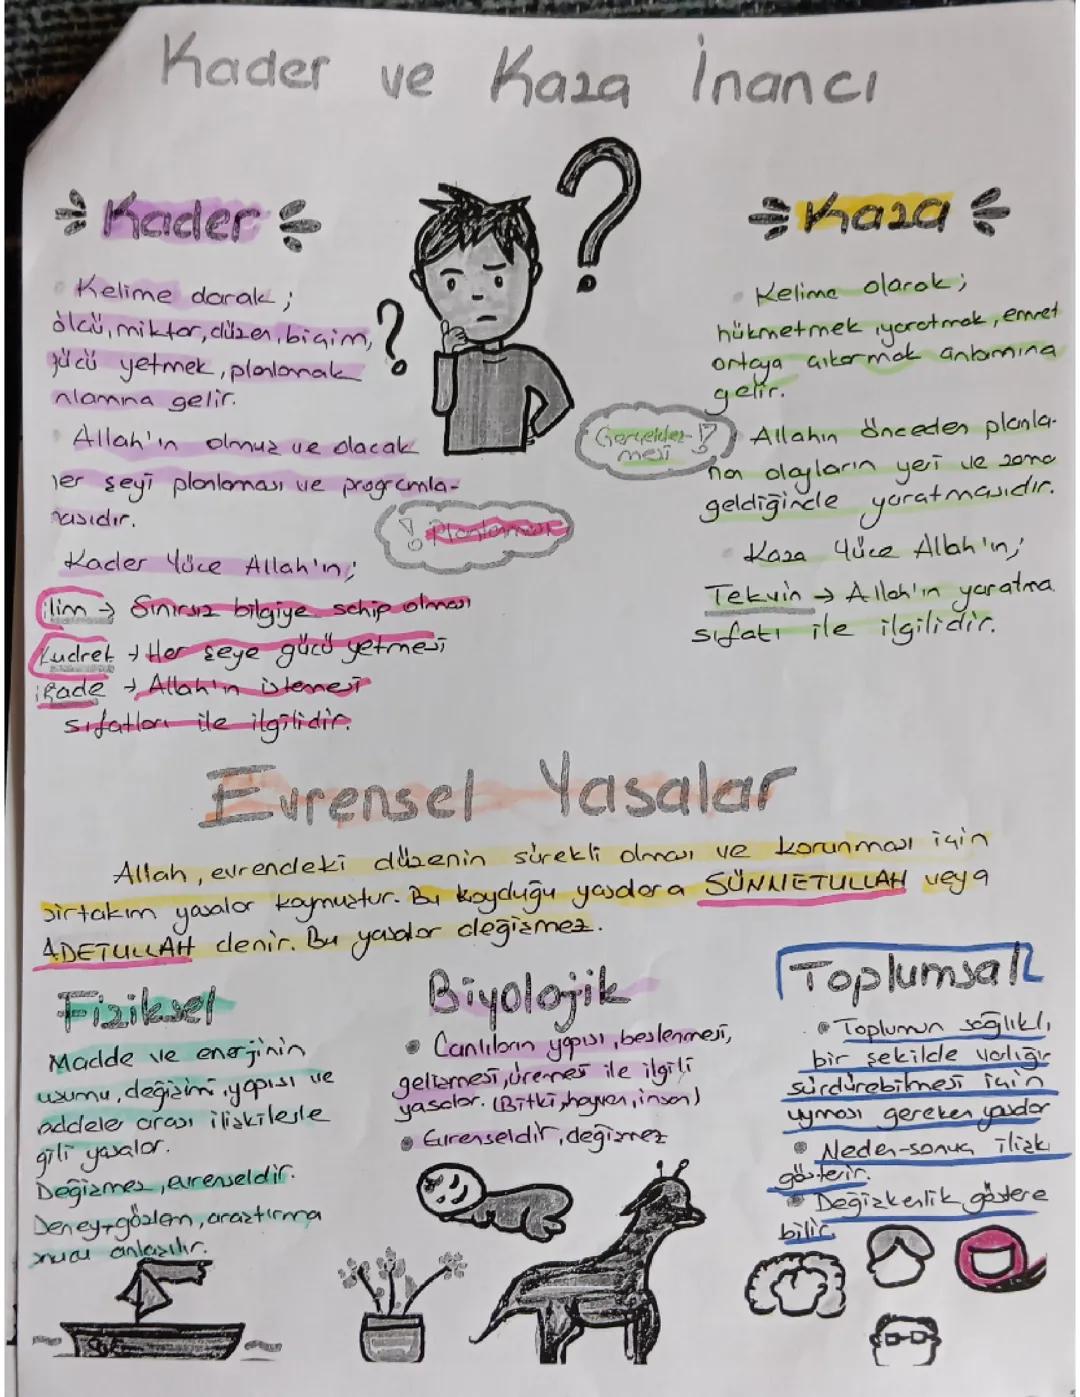 Kader ve Kaza İnancı
Kader
Kelime darak;
ölçü, miktar, düzen, biçim,
gücü yetmek, planlamak
nlamna gelir.
Allah'ın olmuş ve olacak
her şeyi planlaması ve programla-
masıdır.
! Planlanması
Kader Yüce Allah'ın;
ilim → Sınırsız bilgiye sahip olması
Kudret → Her şeye gücü yetmesi
irade → Allah'ın istemesi
sıfatları ile ilgilidir.
? ?
Kaza
Kelime olarak;
hükmetmek, yaratmak, emret
ortaya çıkarmak anlamına
gelir.
Gerçekleş- !?
mesi
Allahın önceden planla-
nan olayların yeri ve zama
geldiğinde yaratmasıdır.
Kaza Yüce Allah'ın;
Tekvin → Allah'ın yaratma
sıfatı ile ilgilidir.
Evrensel Yasalar
Allah, evrendeki düzenin sürekli olması ve korunması için
birtakım yasalar koymuştur. Bu koyduğu yasalara SÜNNETULLAH veya
ADETULLAH denir. Bu yasalar değişmez.
Fiziksel
Madde ve enerjinin
uşumu, değişimi, yapısı ve
addeler arası ilişkilerle
gili yasalar.
Değişmez, evrenseldir.
Deney + gözlem, araştırma
nucu anlaşılır.
Biyolojik
Canlıların yapısı, beslenmesi,
gelişmesi, üremesi ile ilgili
yasalar. (Bitki, hayvan, insan)
Evrenseldir, değişmez
Toplumsal
Toplumun sağlıklı,
bir şekilde varlığı
sürdürebilmesi için
uyması gereken yasalar
Neden-sonuç ilişk
gösterir.
Değişkenlik göstere
bilir